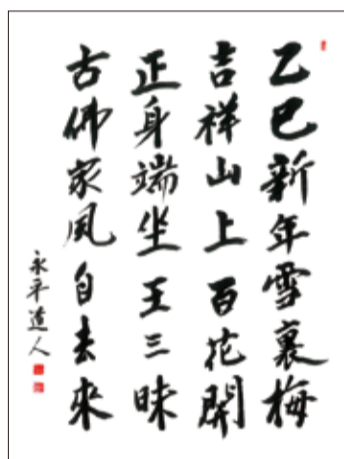 乙巳新年雪裏梅
吉祥山上百花開
正身端坐王三昧
古佛家風自去来
永平道人